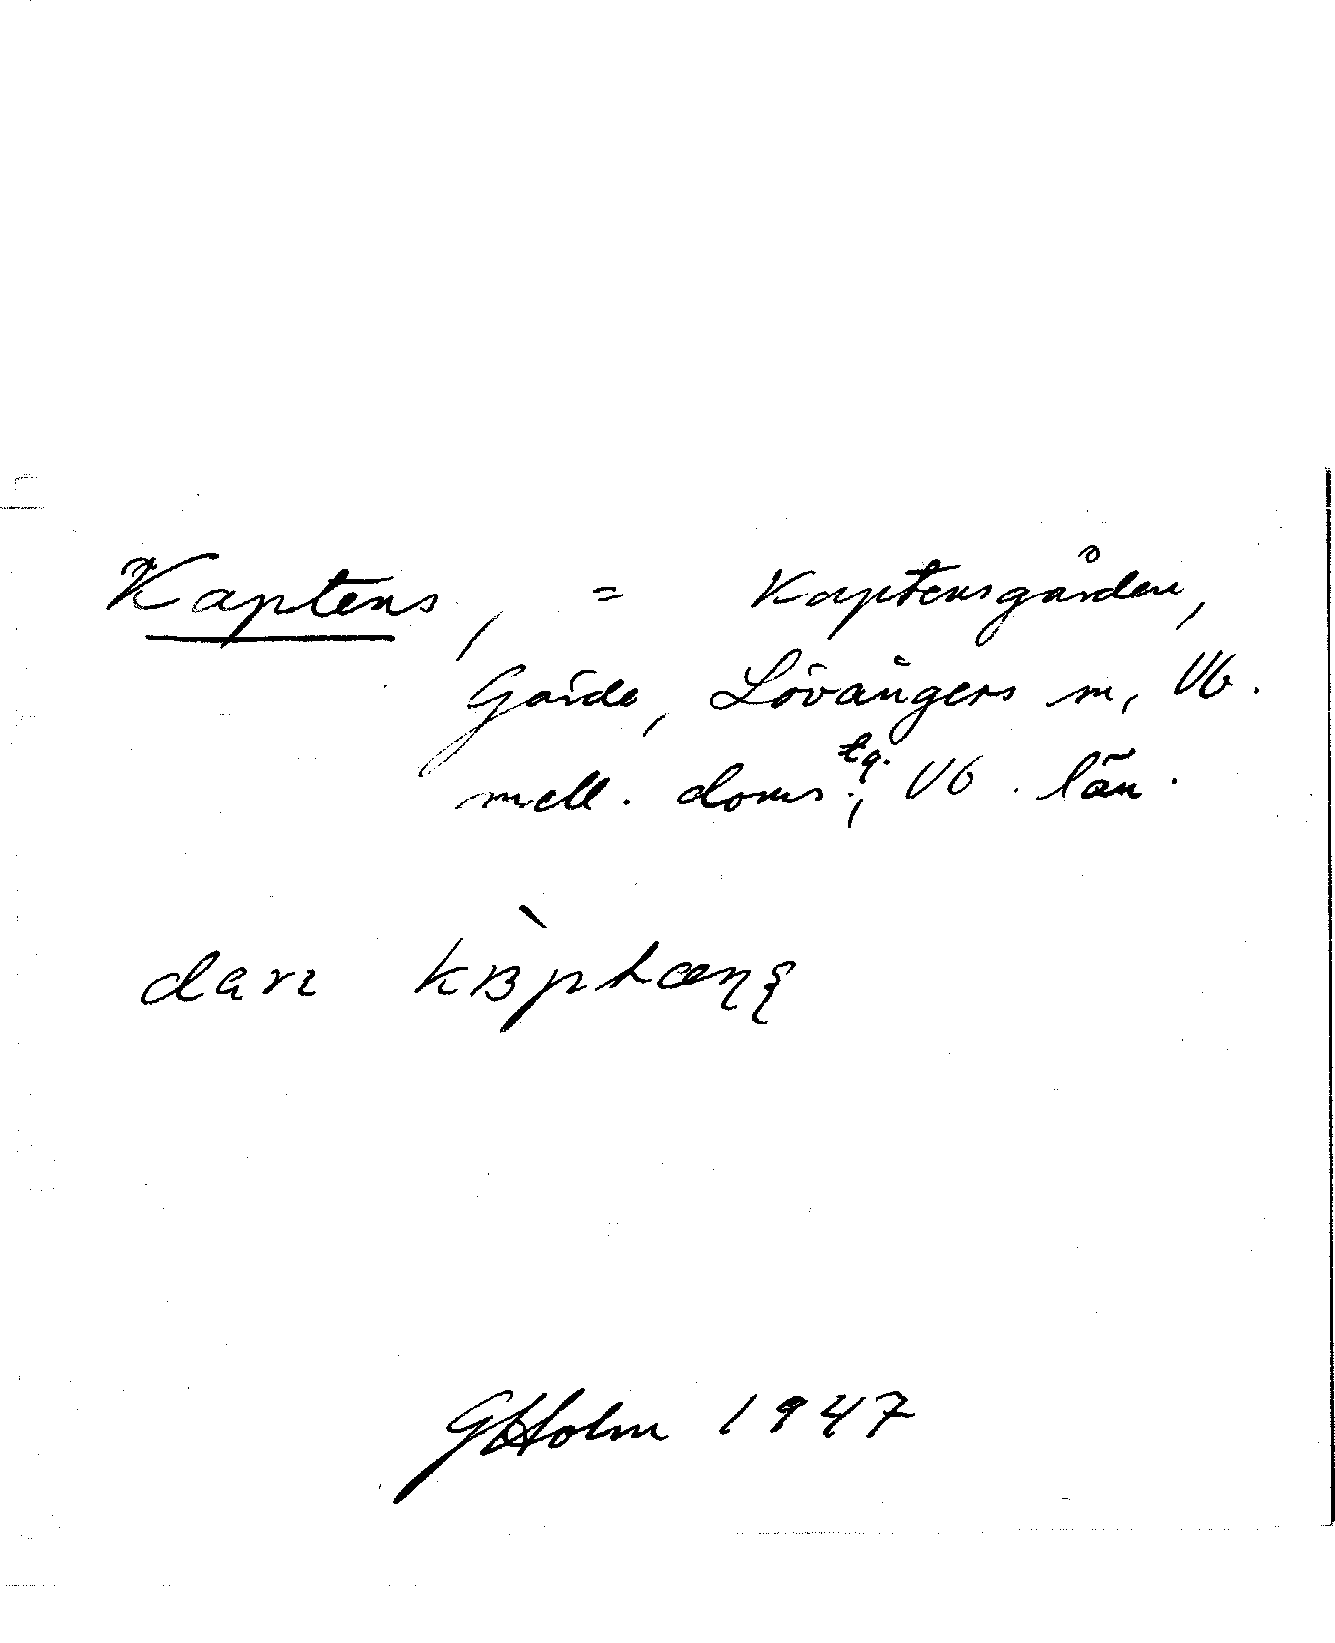 Kaptens, = Kaptensgården,
Gärde, Lövångers sn, Vb.
mell. doms.tg., Vb. län.
darı
GHolm 1947